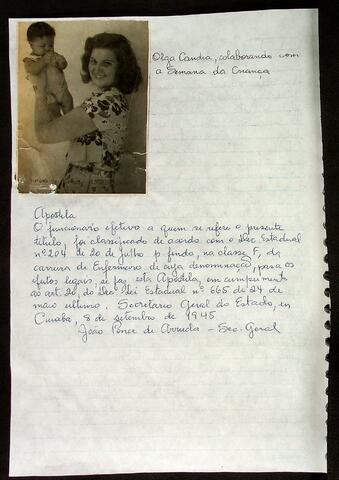 Olga Candia, colaborando com
a Semana da Criança
Apostila
O funcionário efetivo a quem se refere o presente
título, foi classificado de acordo com o Dec. Estadual
nº 204 de 20 de julho p findo, na classe F, da
carreira de Enfermeiro de cuja denominação, para os
efeitos legais, se faz esta Apostila, em cumprimento
ao art. 20, do Dec-Lei Estadual nº 665 de 24 de
maio ultimo. Secretario Geral do Estado, em
Cuiabá, 8 de setembro de 1945
João Ponce de Arruda - Sec. Geral